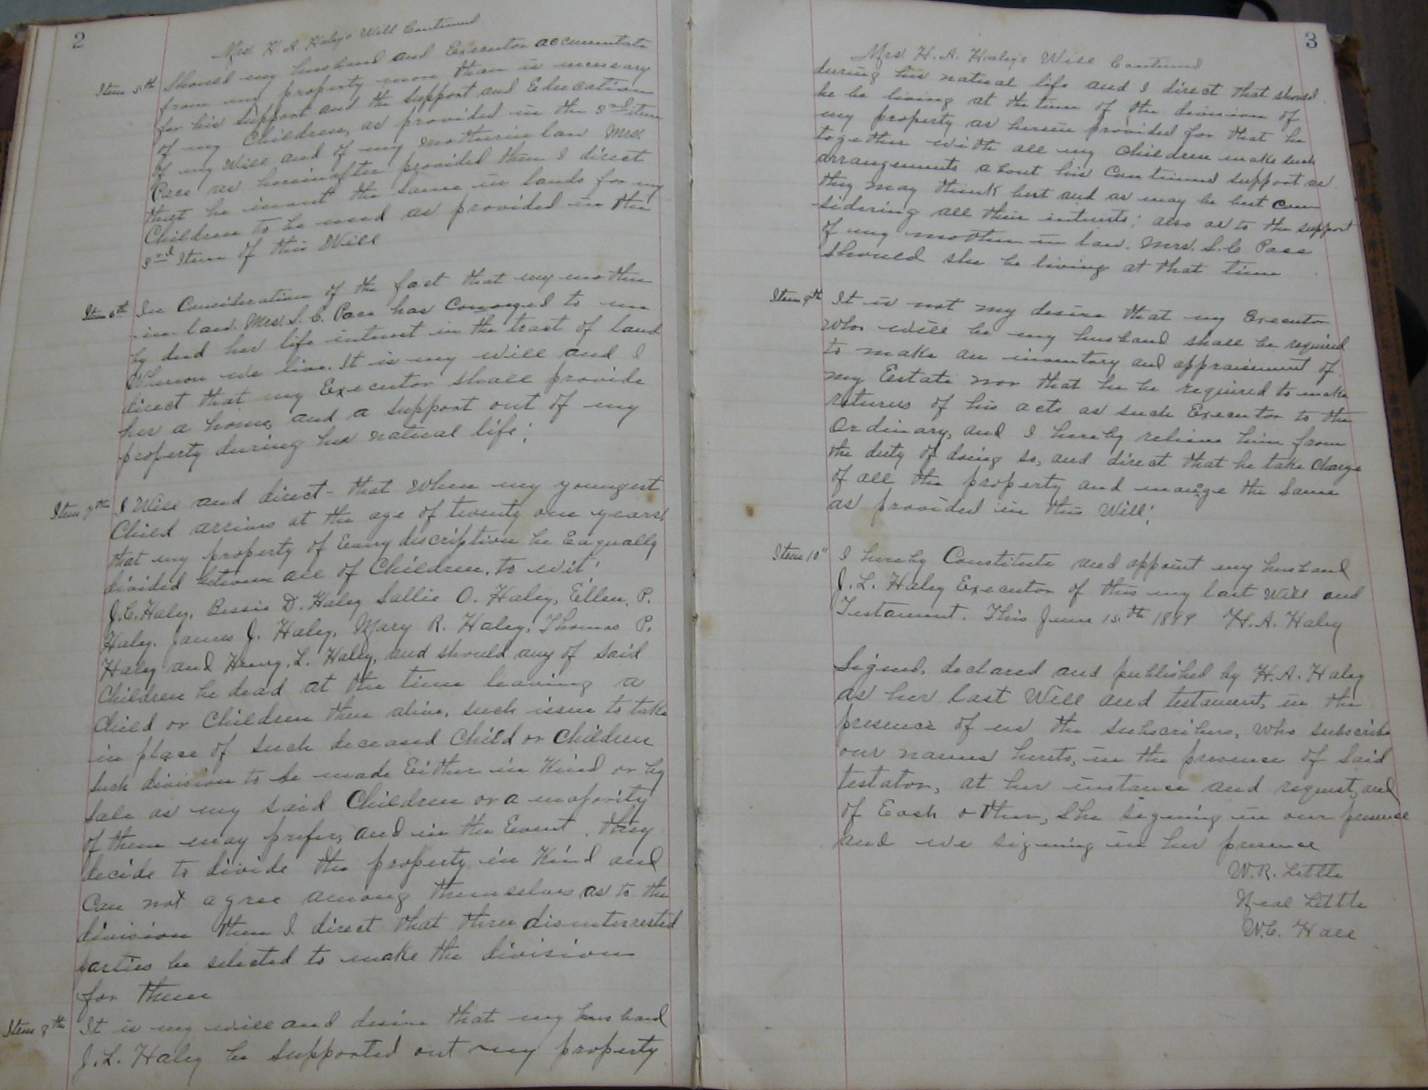 2
Mrs. H. A. Haley's Will Continued
Item 5th Should my husband and Executor accumulate
from my property more than is necessary
for his support and the support and Education
of my Children, as provided in the 3rd item
of my Will and of my mother in law Mrs.
Pass as hereinafter provided then I direct
that he invest the same in lands for my
Children to be used as provided in the
3rd Item of this Will
Item 6th In Consideration of the fact that my mother
in law Mrs. S. C. Pass has Conveyed to me
by deed her life interest in the tract of land
Whereon we live. It is my will and I
direct that my Executor shall provide
her a home, and a support out of my
property during her natural life;
Item 7th I Will and direct - that when my youngest
Child arrives at the age of twenty one years
that my property of Every discription be Eaqually
divided between all of Children, to wit;
J.C. Haley, Bessie D. Haley Sallie O. Haley, Ellen. P.
Haley. James J. Haley, Mary R. Haley, Thomas P.
Haley and Henry. L. Haley, and should any of said
Children be dead at the time leaving a
Child or Children then alive, such issue to take
in place of such deceased Child or Children
such division to be made Either in Kind or by
sale as my said Children or a majority
of them may prefer, and in the Event they
decide to divide the property in Kind and
Can not agree among themselves as to the
division then I direct that three disinterrested
parties be selected to make the division
for them
Item 8th It is my will and desire that my husband
J. L. Haley be supported out my property
3
Mrs H. A. Haley's Will Continued
during his natural life and I direct that should
he be living at the time of the division of
my property as herein provided for that he
together with all my Children make such
arrangements about his Continued support as
they may think best and as may be best con
sidering all their interests; also as to the support
of my mother in law. Mrs. S. C. Pass
should she be living at that time
Item 9th It is not my desire that my Executor
who will be my husband shall be required
to make an inventory and appraisement of
my Estate nor that he be required to make
returns of his acts as such Executor to the
Ordinary, and I hereby relieve him from
the duty of doing so, and direct that he take Charge
of all the property and manage the same
as provided in this Will;
Item 10" I hereby Constitute and appoint my husband
J. L. Haley Executor of this my last Will and
Testament. This June 15th 1899 H. A. Haley
Signed, declared and published by H. A. Haley
as her last Will and testament, in the
presence of us the subscribers, who subscribe
our names hereto, in the presence of said
testator, at her instance and request, and
of Each other, She signing in our presence
and we signing in her presence
W. R. Little
Neal Little
W. C. Hall